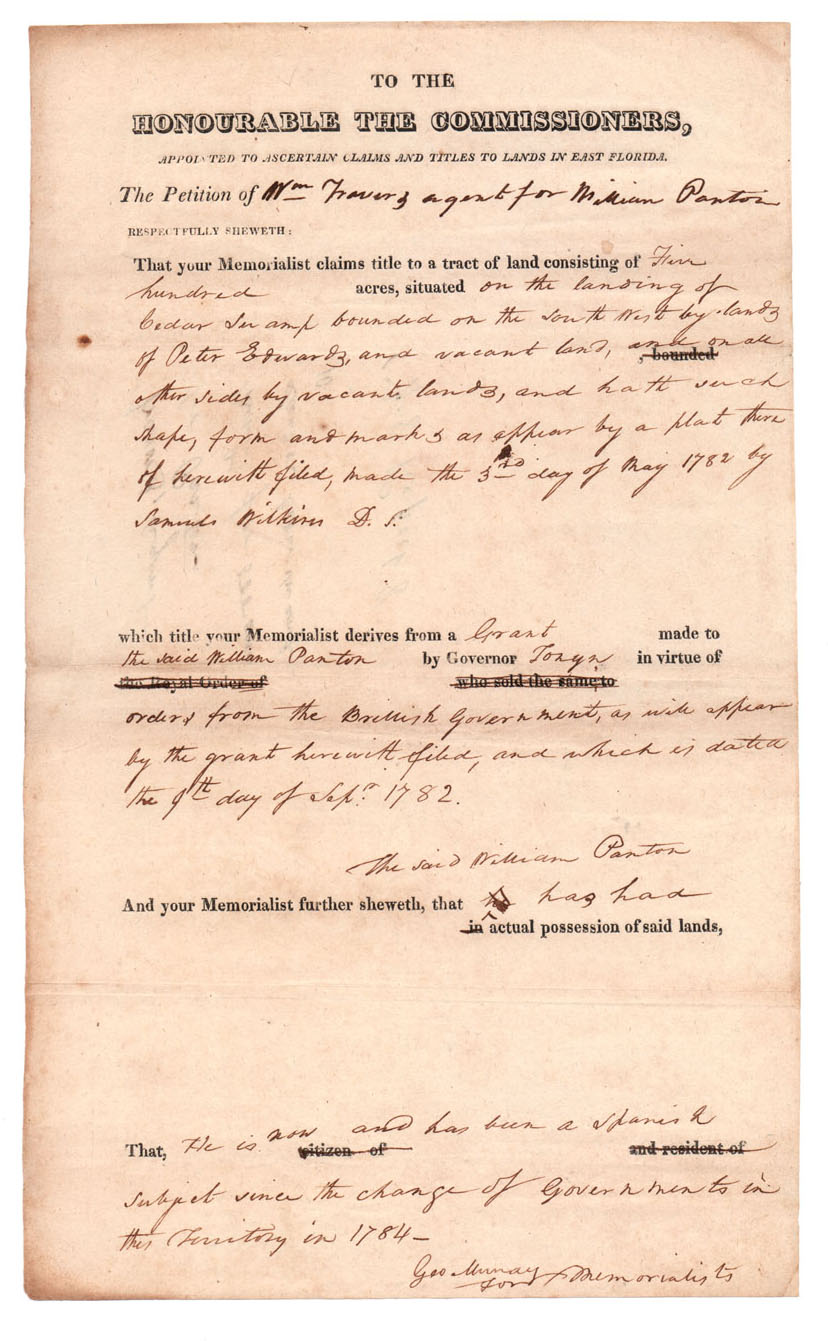 TO THE
HONOURABLE THE COMMISSIONERS,
APPOINTED TO ASCERTAIN CLAIMS AND TITLES TO LANDS IN EAST FLORIDA.
The Petition of Wm Travers agent for William Panton
RESPECTFULLY SHEWETH:
That your Memorialist claims title to a tract of land consisting of Five
hundred acres, situated on the landing of
Cedar Swamp bounded on the South West by lands
of Peter Edwards, and vacant land, and on all
, bounded
other sides by vacant lands, and hath such
shape, form and marks as appear by a plat there
of herewith filed, made the 3rd day of May 1782 by
Samuel Wilkins D. S.
which title your Memorialist derives from a Grant made to
the said William Panton by Governor Tonyn in virtue of
the Royal Order of who sold the same to
orders from the Brittish Government, as will appear
by the grant herewith filed, and which is dated
the 9th day of Sepr. 1782.
The said William Panton
And your Memorialist further sheweth, that he has had
in actual possession of said lands,
That, He is now and has been a Spanish
citizen of and resident of
subject since the change of Governments in
this Territory in 1784-
Geo Murray
for Memorialists